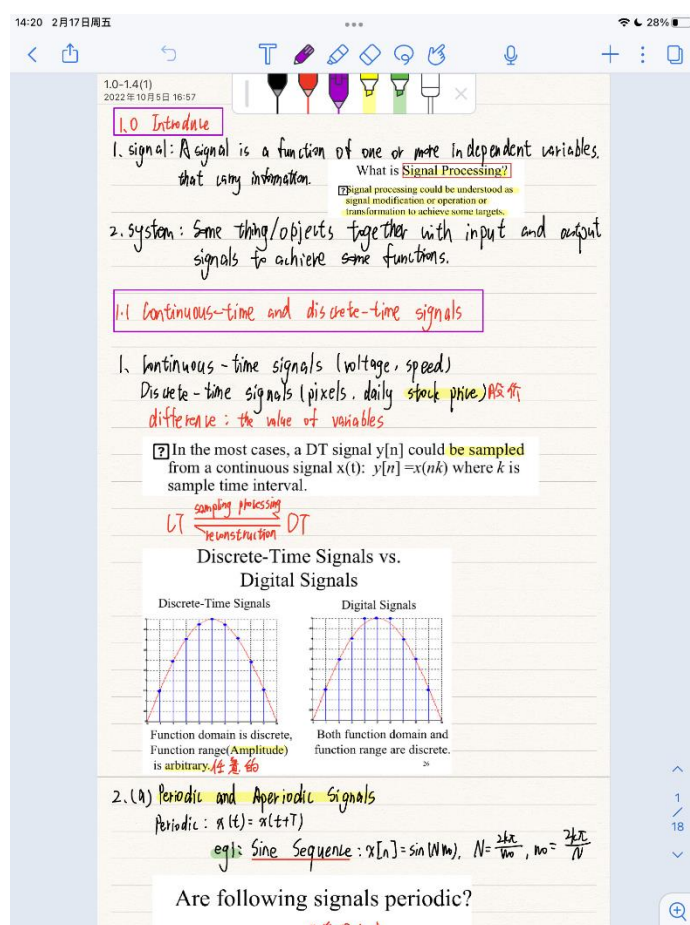 14:20 2月17日周五
28%
T
1.0-1.4(1)
2022年10月5日 16:57
1.0 Introduce
1. signal: A signal is a function of one or more independent variables.
that carry information.
What is Signal Processing?
Signal processing could be understood as
signal modification or operation or
transformation to achieve some targets.
2. system: Some thing/objects together with input and output
signals to achieve some functions.
1.1 Continuous-time and discrete-time signals
1. Continuous-time signals (voltage, speed)
Discrete-time signals (pixels, daily stock price) 股价
difference: the value of variables
In the most cases, a DT signal y[n] could be sampled
from a continuous signal x(t): y[n] =x(nk) where k is
sample time interval.
sampling processing
CT DT
reconstruction
Discrete-Time Signals vs.
Digital Signals
Discrete-Time Signals
Digital Signals
Function domain is discrete,
Function range(Amplitude)
is arbitrary. 任意的
Both function domain and
function range are discrete.
26
2.(a) Periodic and Aperiodic Signals
Periodic: x(t)=x(t+T)
eg1: Sine Sequence: x[n]=sin(
Are following signals periodic?
1
/
18